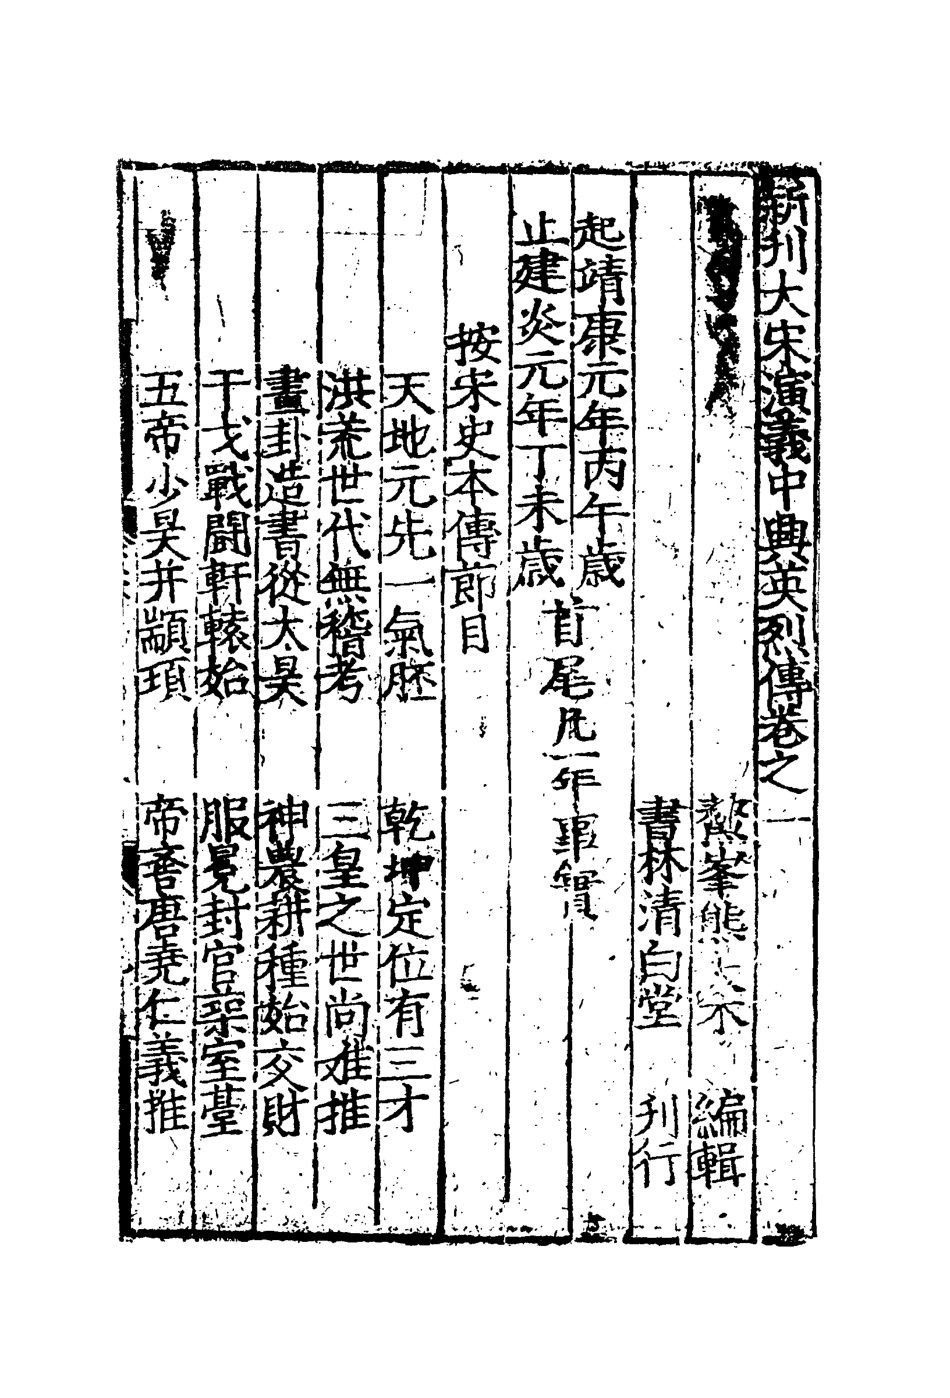 新刋大宋演義中興英烈傳卷之一
鰲峯熊大木 編輯
書林清白堂 刋行
起靖康元年丙午歲
止建炎元年丁未歲
首尾凡一年事實
按宋史本傳節目
天地元先一氣胚 乾坤定位有三才
洪荒世代無稽考 三皇之世尚难推
畫卦造書從太昊 神農耕種始交財
干戈戰鬪軒轅始 服冕封官架室臺
五帝少昊并顓頊 帝嚳唐堯仁義推